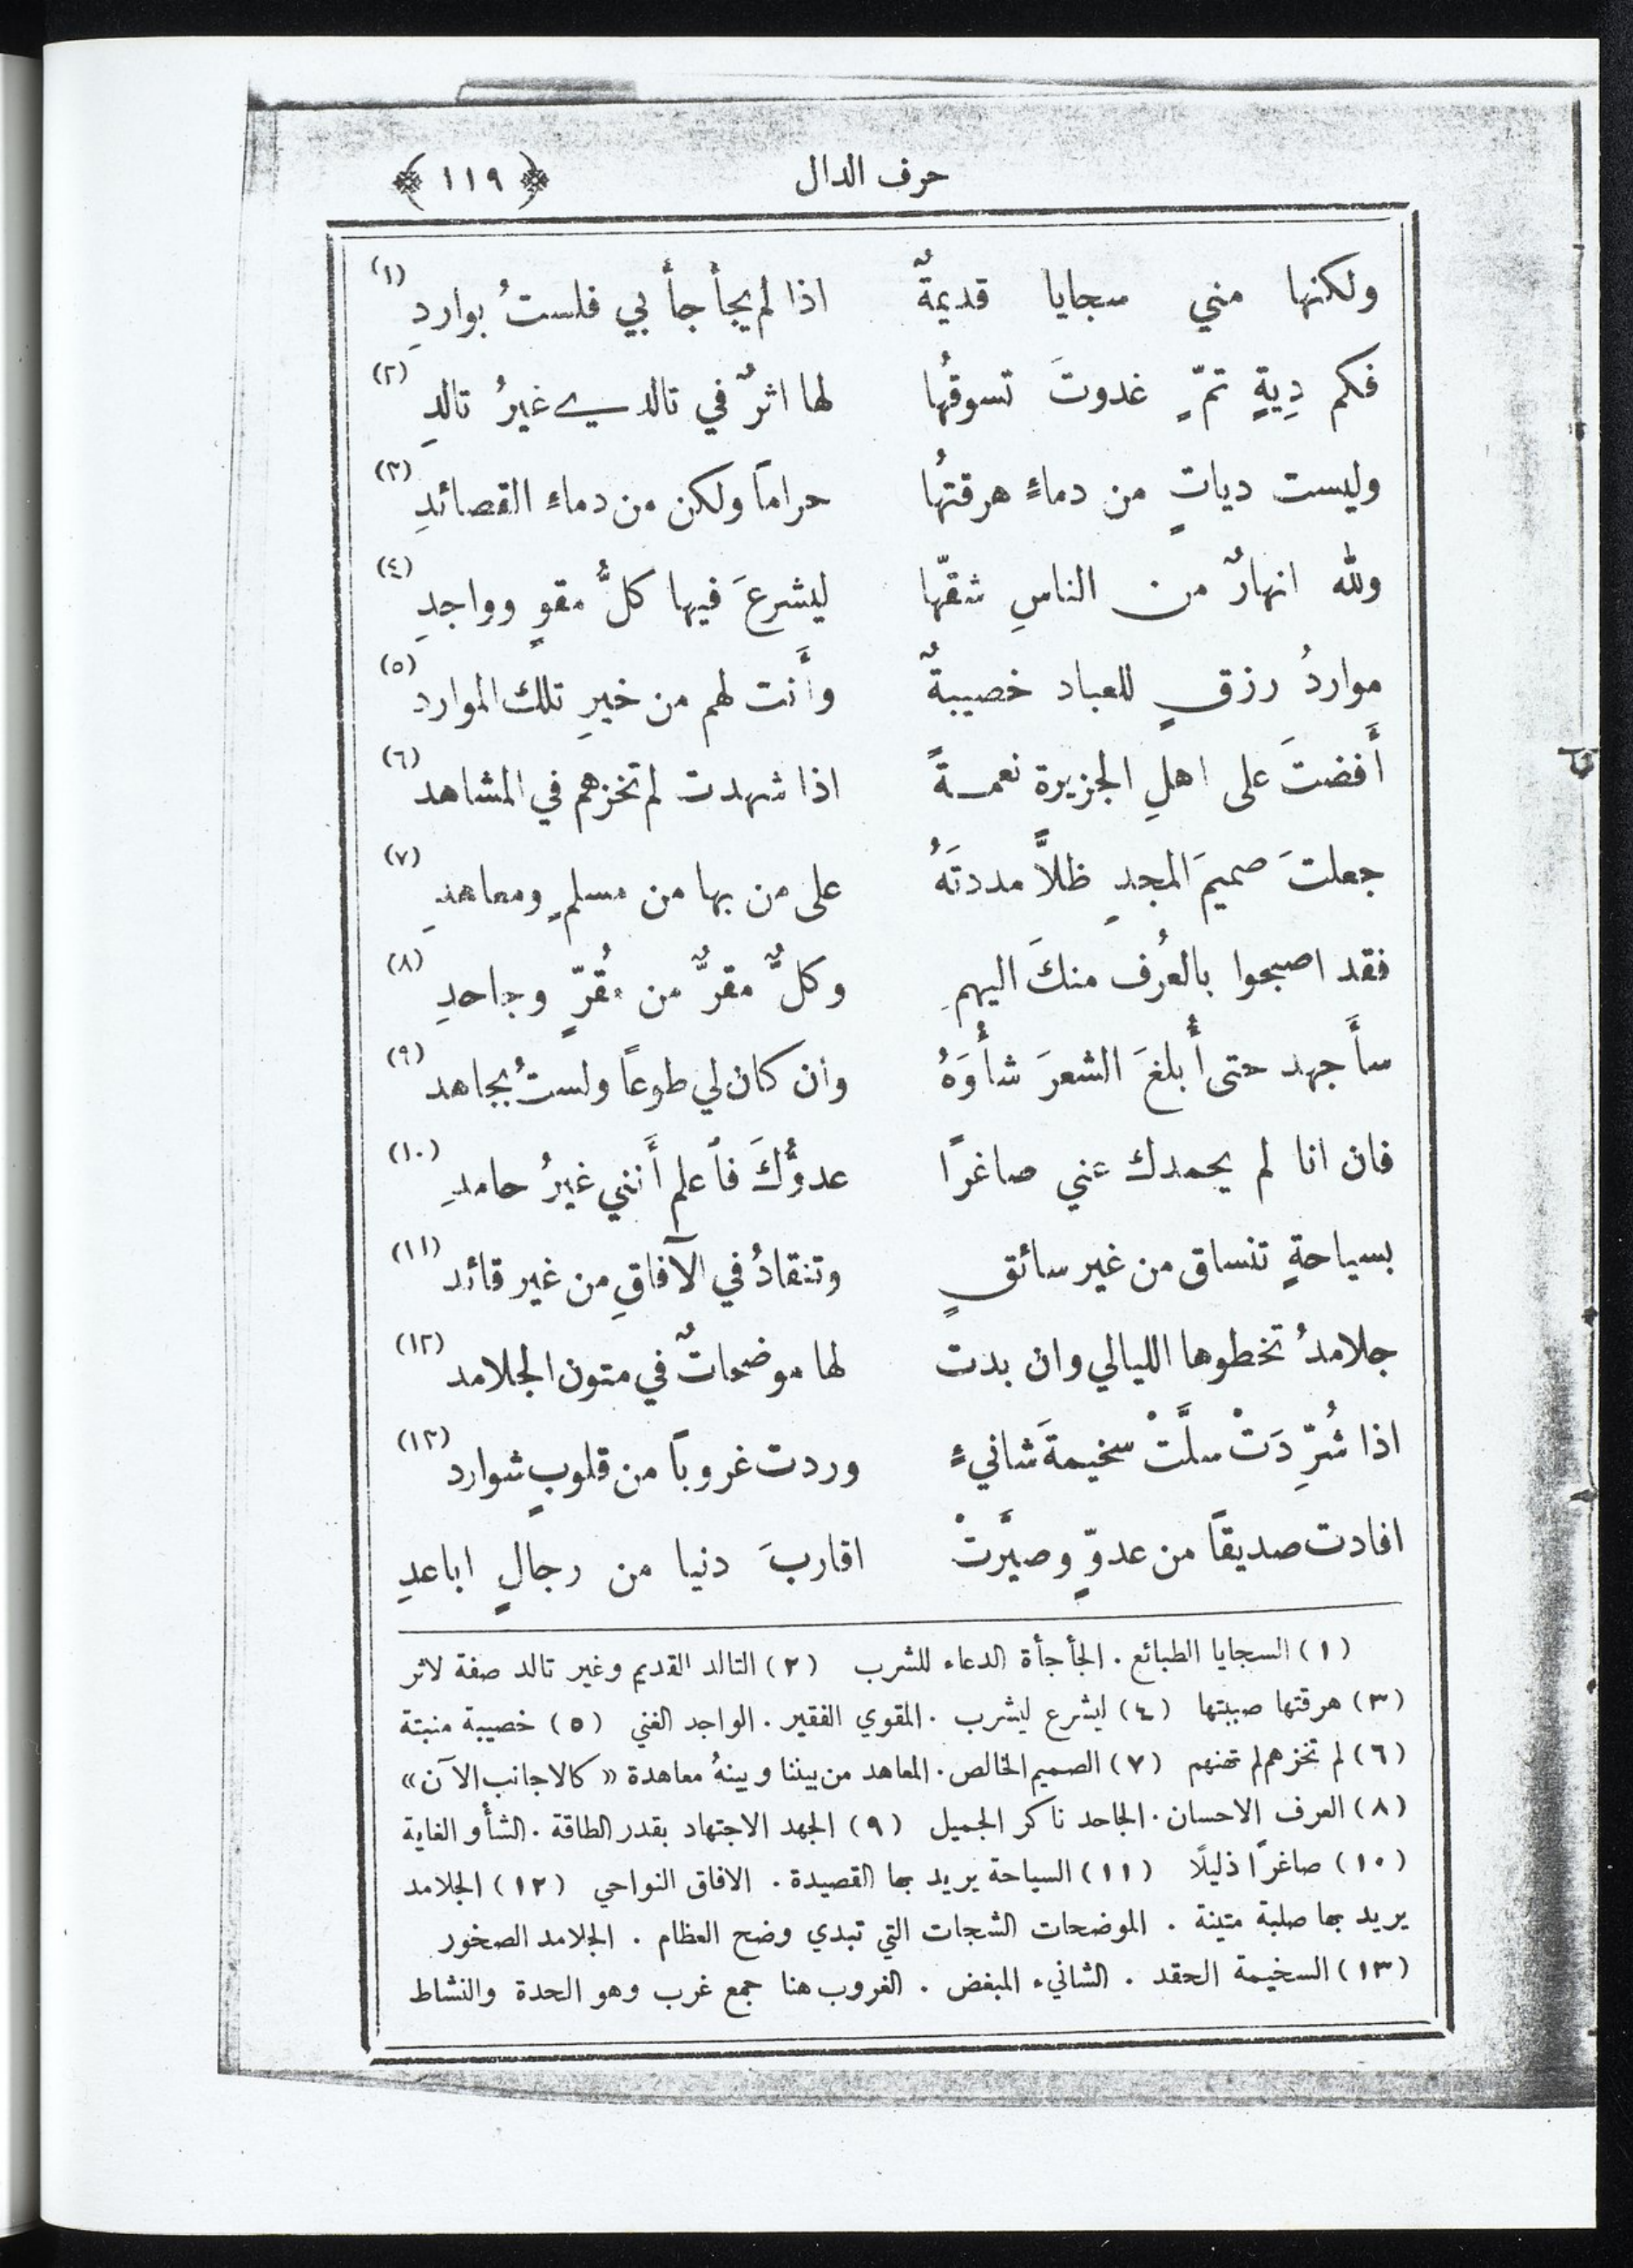 حرف الدال ﴿ ١١٩ ﴾
ولكنها مني سجايا قديمةٌ اذا لم يجأجأ بي فلستُ بواردِ (١)
فكم دِيةٍ تمٍّ غدوتَ تسوقُها لها اثرٌ في تالدي غيرُ تالدِ (٢)
وليست دياتٍ من دماءٍ هرقتُها حراماً ولكن من دماءِ القصائدِ (٣)
ولله انهارٌ من الناسِ شقّها ليشرعَ فيها كلُّ مقوٍ وواجدِ (٤)
مواردُ رزقٍ للعباد خصيبةٌ وأَنت لهم من خيرِ تلك الموارد (٥)
أَفضتَ على اهلِ الجزيرة نعمةً اذا شهدت لم تخزهم في المشاهد (٦)
جعلتَ صميمَ المجدِ ظلاًّ مددتَهُ على من بها من مسلمٍ ومعاهدِ (٧)
فقد اصبحوا بالعُرف منكَ اليهمِ وكلٌّ مقرٌّ من مُقرٍّ وجاحدِ (٨)
سأَجهد حتى أُبلغَ الشعرَ شأْوَهُ وان كان لي طوعاً ولستُ بجاهد (٩)
فان انا لم يحمدك عني صاغرًا عدوُّكَ فاعلم أَنني غيرُ حامدِ (١٠)
بسياحةٍ تنساق من غير سائقٍ وتنقادُ في الآفاقِ من غير قائد (١١)
جلامدُ تخطوها الليالي وان بدت لها موضحاتٌ في متون الجلامد (١٢)
اذا شُرِّدَتْ سلَّتْ سخيمةَ شانيءٍ وردت غروباً من قلوبٍ شوارد (١٣)
افادت صديقاً من عدوٍّ وصيَّرتْ اقاربَ دنيا من رجالٍ اباعدِ
(١) السجايا الطبائع . الجأجأة الدعاء للشرب (٢) التالد القديم وغير تالد صفة لاثر
(٣) هرقتها صببتها (٤) ليشرع ليشرب . المقوي الفقير . الواجد الغني (٥) خصيبة منبتة
(٦) لم تخزهم لم تهنهم (٧) الصميم الخالص . المعاهد من بيننا وبينهُ معاهدة « كالاجانب الآن »
(٨) العرف الاحسان . الجاحد ناكر الجميل (٩) الجهد الاجتهاد بقدر الطاقة . الشأو الغاية
(١٠) صاغرًا ذليلًا (١١) السياحة يريد بها القصيدة . الافاق النواحي (١٢) الجلامد
يريد بها صلبة متينة . الموضحات الشجات التي تبدي وضح العظام . الجلامد الصخور
(١٣) السخيمة الحقد . الشانيء المبغض . الغروب هنا جمع غرب وهو الحدة والنشاط